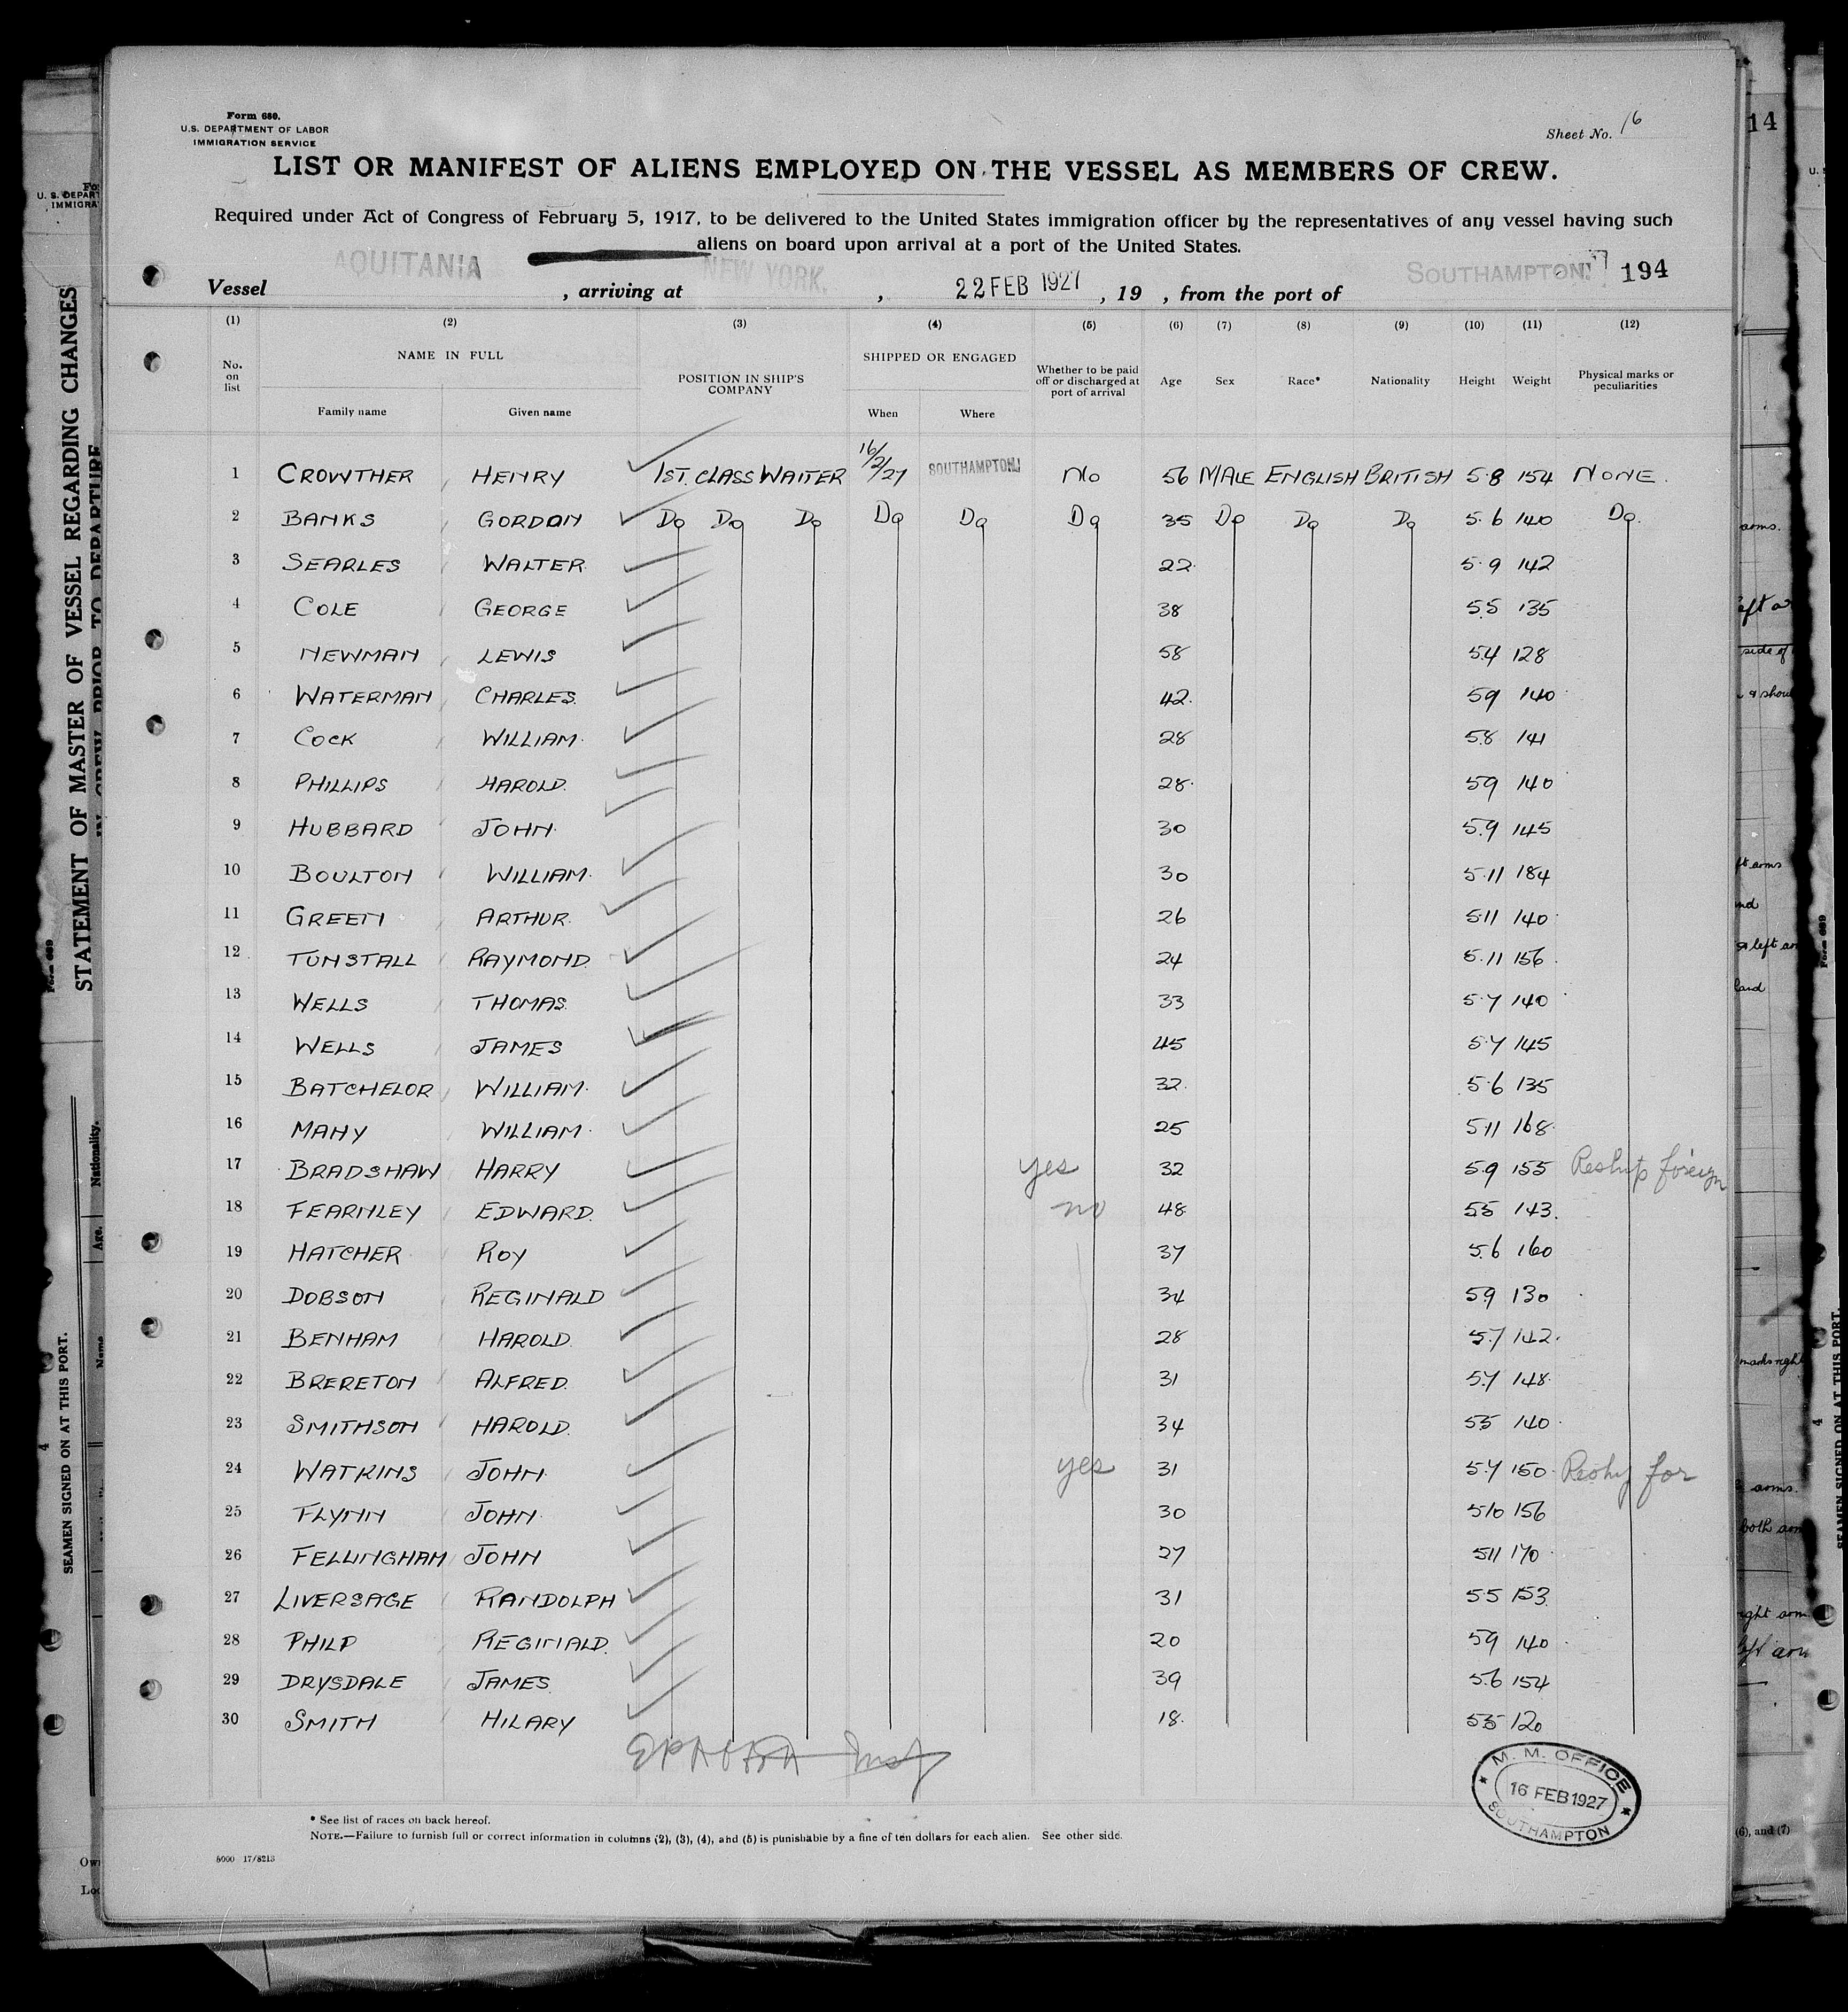 Form 680.
U.S. DEPARTMENT OF LABOR
IMMIGRATION SERVICE
Sheet No. 16
14
LIST OR MANIFEST OF ALIENS EMPLOYED ON THE VESSEL AS MEMBERS OF CREW.
Required under Act of Congress of February 5, 1917, to be delivered to the United States immigration officer by the representatives of any vessel having such
aliens on board upon arrival at a port of the United States.
Vessel AQUITANIA, arriving at NEW YORK., 22 FEB 1927, 19 , from the port of SOUTHAMPTON. 194
(1) (2) (3) (4) (5) (6) (7) (8) (9) (10) (11) (12)
No. on list NAME IN FULL Family name Given name POSITION IN SHIP'S COMPANY SHIPPED OR ENGAGED When Where Whether to be paid off or discharged at port of arrival Age Sex Race* Nationality Height Weight Physical marks or peculiarities
1 CROWTHER, HENRY 1ST. CLASS WAITER 16/2/27 SOUTHAMPTON. No 56 MALE ENGLISH BRITISH 5.8 154 NONE.
2 BANKS, GORDON Do Do Do Do Do Do 35 Do Do Do 5.6 140 Do.
3 SEARLES, WALTER. 22. 5.9 142
4 COLE, GEORGE 38 5.5 135
5 NEWMAN, LEWIS 58 5.4 128
6 WATERMAN, CHARLES. 42. 5 9 140
7 COCK, WILLIAM. 28 5.8 141
8 PHILLIPS, HAROLD. 28. 5 9 140
9 HUBBARD, JOHN. 30 5.9 145
10 BOULTON, WILLIAM. 30 5.11 184
11 GREEN, ARTHUR. 26 5.11 140
12 TUNSTALL, RAYMOND. 24 5.11 156
13 WELLS, THOMAS. 33 5.7 140
14 WELLS, JAMES 45 5.7 145
15 BATCHELOR, WILLIAM. 32. 5.6 135
16 MAHY, WILLIAM. 25 5.11 168
17 BRADSHAW, HARRY yes 32 5.9 155 Reship foreign
18 FEARNLEY, EDWARD. no 48 5 5 143.
19 HATCHER, ROY 37 5.6 160
20 DOBSON, REGINALD 34 5 9 130
21 BENHAM, HAROLD. 28 5.7 142.
22 BRERETON, ALFRED. 31 5.7 148.
23 SMITHSON, HAROLD. 34 5 5 140
24 WATKINS, JOHN. yes 31 5.7 150. Reship for
25 FLYNN, JOHN. 30 5.10 156
26 FELLINGHAM, JOHN 27 5 11 170
27 LIVERSAGE, RANDOLPH 31 5 5 153.
28 PHILP REGINALD. 20 5 9 140
29 DRYSDALE, JAMES. 39 5.6 154
30 SMITH, HILARY 18. 5 5 120
M. M. OFFICE
16 FEB 1927
SOUTHAMPTON
* See list of races on back hereof.
NOTE.—Failure to furnish full or correct information in columns (2), (3), (4), and (5) is punishable by a fine of ten dollars for each alien. See other side.
5000 17/8213
STATEMENT OF MASTER OF VESSEL REGARDING CHANGES
IN CREW PRIOR TO DEPARTURE
Form 689
SEAMEN SIGNED ON AT THIS PORT.
4
Nationality.
Age.
Name
arms.
side of
left arm
both arm
(6), and (7)
Form 689
SEAMEN SIGNED ON AT THIS PORT.
4